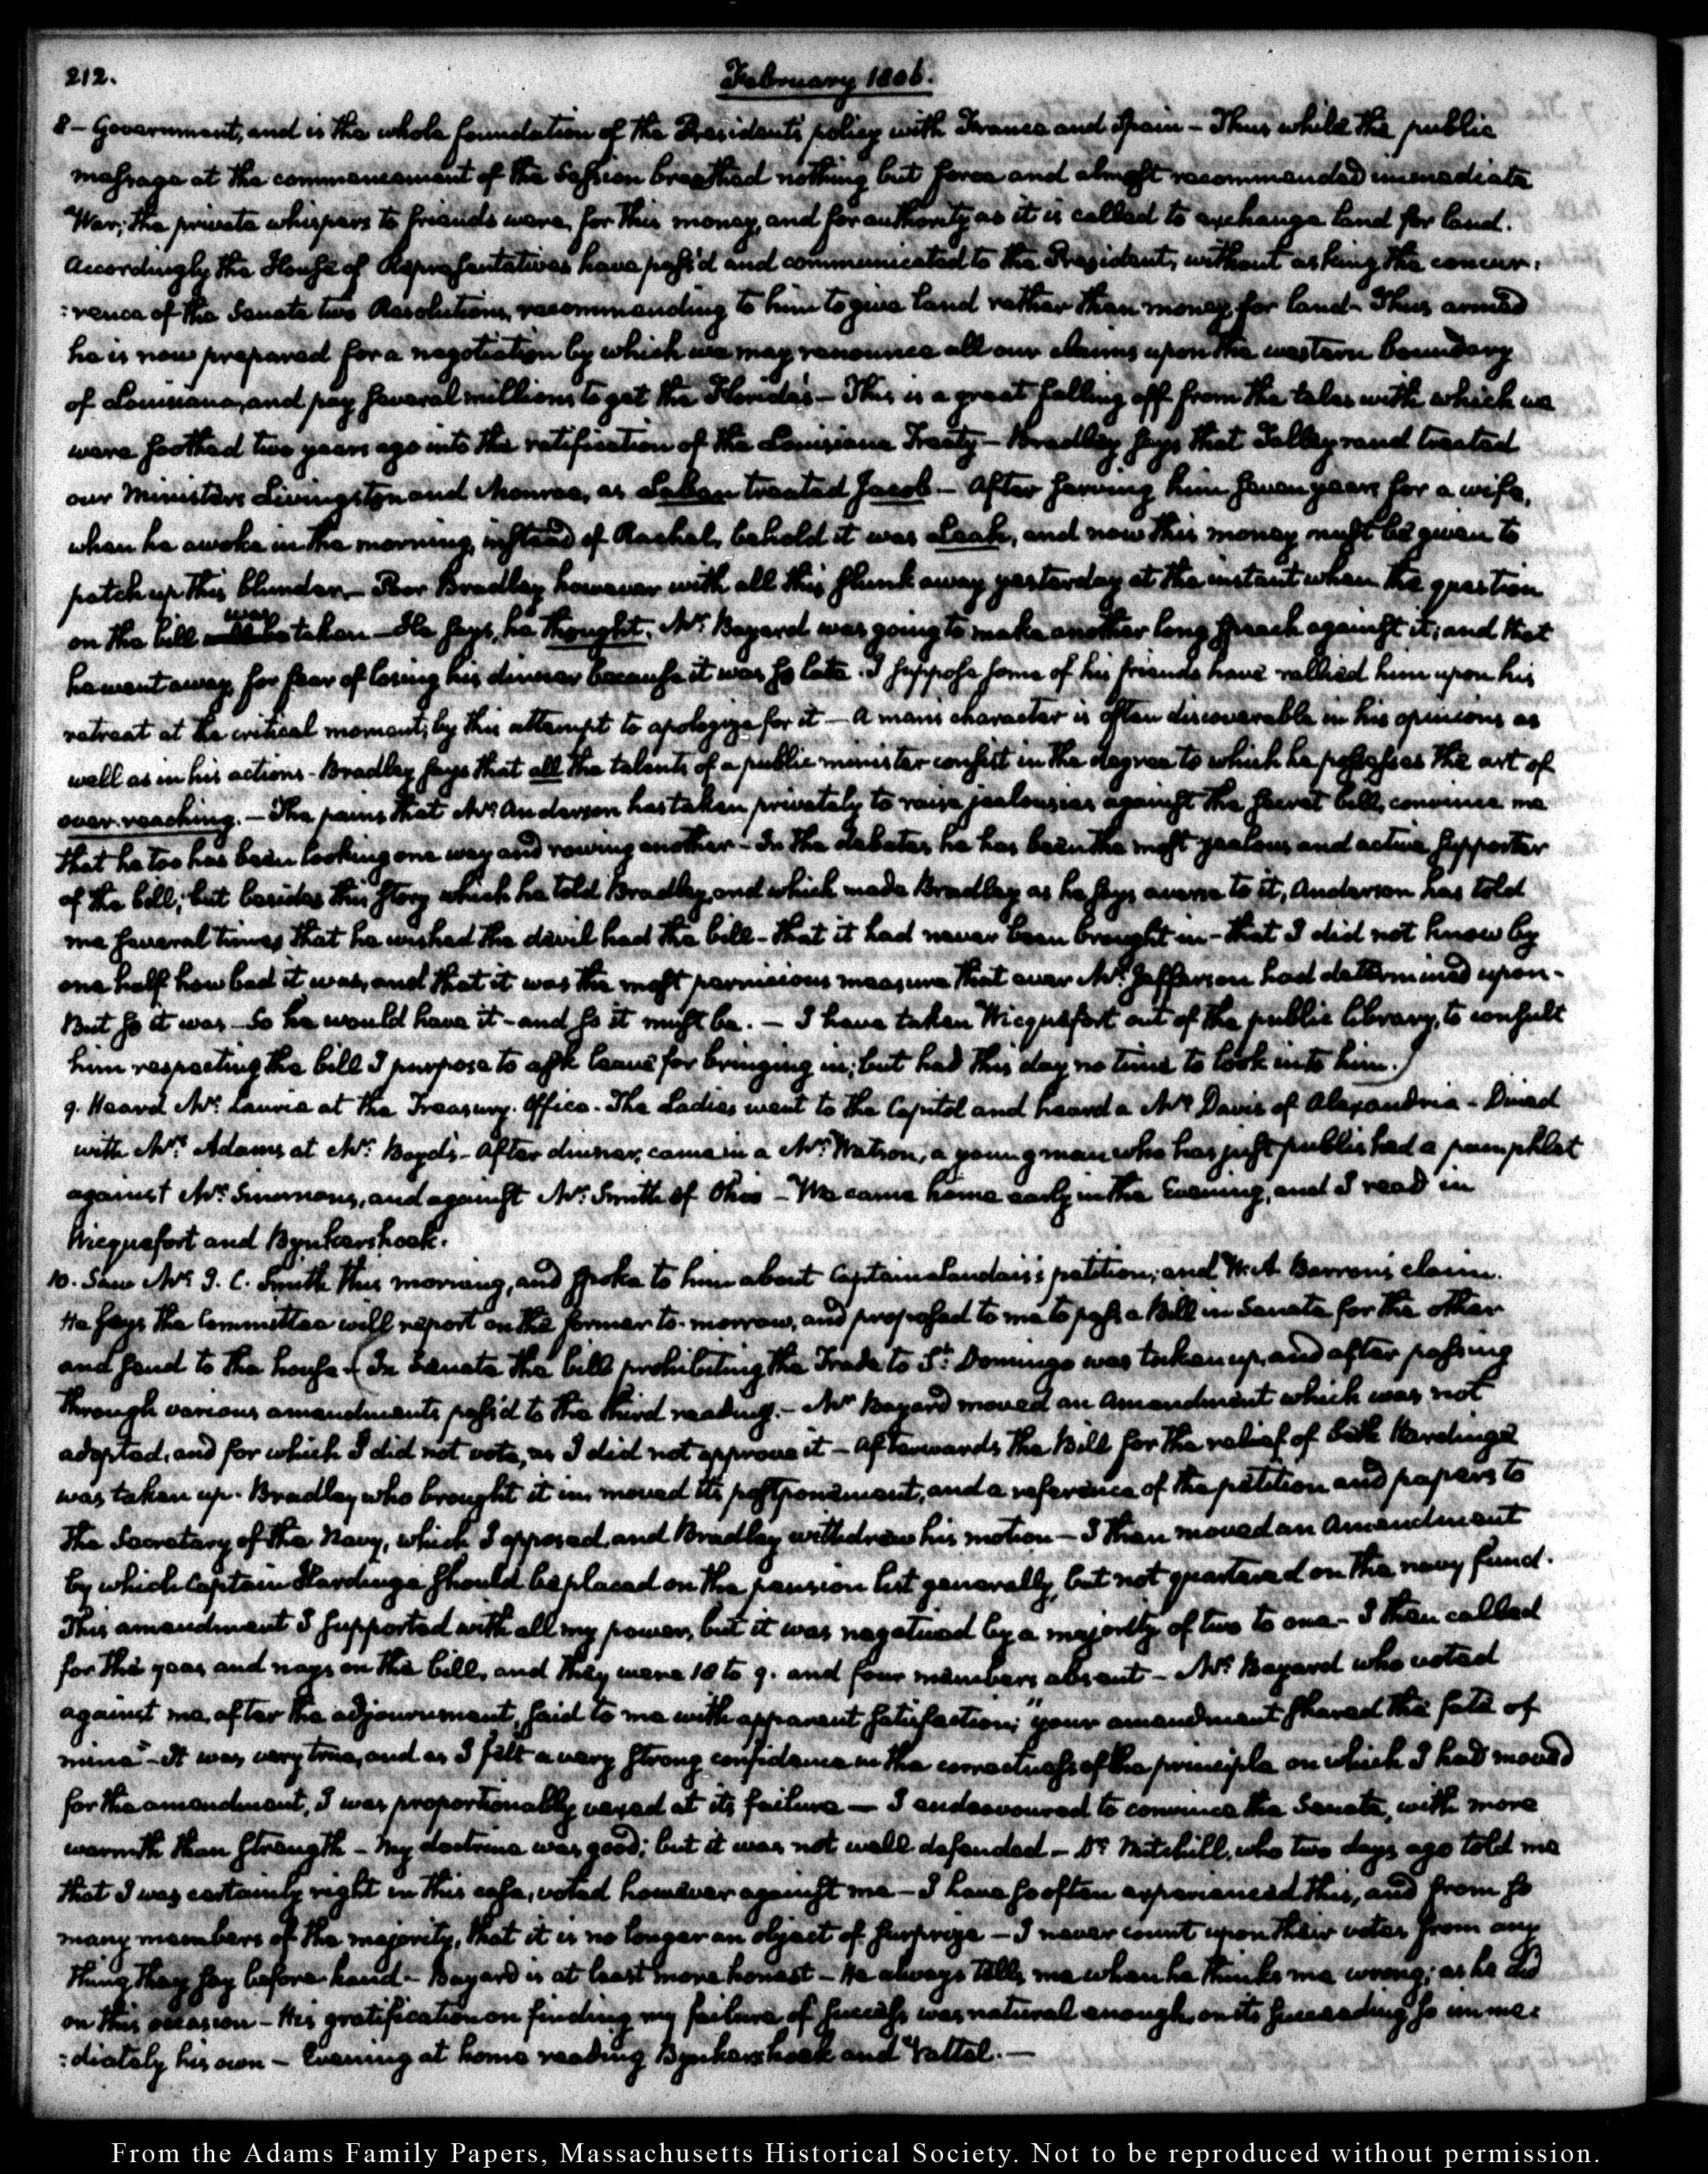 212.
February 1806.
8 - Government, and is the whole foundation of the President's policy with France and Spain - Thus while the public
message at the commencement of the Session breathed nothing but force and almost recommended immediate
War; the private whispers to friends were, for this money, and for authority as it is called to exchange land for land.
Accordingly the House of Representatives have pass'd and communicated to the President, without asking the concur:
:rence of the Senate two Resolutions, recommending to him to give land rather than money, for land - Thus armed
he is now prepared for a negotiation by which we may renounce all our claims upon the western boundary
of Louisiana, and pay several millions to get the Florida's - This is a great falling off from the tales with which we
were soothed two years ago into the ratification of the Louisiana Treaty - Bradley says that Talleyrand treated
our Ministers Livingston and Monroe, as Laban treated Jacob - After serving him seven years for a wife,
when he awoke in the morning, instead of Rachel, behold it was Leah, and now this money must be given to
patch up this blunder. - Poor Bradley however with all this slunk away yesterday at the instant when the question
was
on the bill be taken - He says, he thought, Mr. Bayard was going to make another long speech against it; and that
he went away, for fear of losing his dinner because it was so late. I suppose some of his friends have rallied him upon his
retreat at the critical moment; by this attempt to apologize for it - A man's character is often discoverable in his opinions as
well as in his actions - Bradley says that all the talents of a public minister consist in the degree to which he possesses the art of
over-reaching. - The pains that Mr. Anderson has taken privately to raise jealousies against the secret bill, convince me
that he too has been looking one way and rowing another - In the debates he has been the most zealous and active supporter
of the bill; but besides this story which he told Bradley, and which made Bradley as he says averse to it, Anderson has told
me several times that he wished the devil had the bill - that it had never been brought in - that I did not know by
one half how bad it was, and that it was the most pernicious measure that ever Mr. Jefferson had determined upon -
But so it was - So he would have it - and so it must be. - I have taken Wicquefort out of the public library, to consult
him respecting the bill I purpose to ask leave for bringing in; but had this day no time to look into him.)
9. Heard Mr. Laurie at the Treasury Office - The Ladies went to the Capitol and heard a Mr. Davis of Alexandria - Dined
with Mrs. Adams at Mr. Boyd's - After dinner, came in a Mr. Watson, a young man who has just published a pamphlet
against Mr. Simmons, and against Mr. Smith of Ohio - We came home early in the Evening, and I read in
Wicquefort and Bynkershoek.
10. Saw Mr. J. C. Smith this morning, and spoke to him about Captain Landais's petition; and W. A. Barron's claim.
He says the Committee will report on the former to-morrow, and proposed to me to pass a Bill in Senate for the other
and send to the house - (In Senate the bill prohibiting the Trade to St. Domingo was taken up, and after passing
through various amendments pass'd to the third reading. - Mr. Bayard moved an Amendment which was not
adopted, and for which I did not vote, as I did not approve it - Afterwards the Bill for the relief of Seth Harding
was taken up. Bradley who brought it in, moved its postponement, and a reference of the petition and papers to
the Secretary of the Navy, which I opposed, and Bradley withdrew his motion - I then moved an Amendment
by which Captain Harding should be placed on the pension list generally, but not quartered on the navy fund.
This amendment I supported with all my power, but it was negatived by a majority of two to one - I then called
for the yeas and nays on the bill, and they were 18 to 9. and four members absent - Mr. Bayard who voted
against me, after the adjournment, said to me with apparent satisfaction; "your amendment shared the fate of
mine" - It was very true, and as I felt a very strong confidence in the correctness of the principle on which I had moved
for the amendment, I was proportionably vexed at its failure - I endeavoured to convince the Senate, with more
warmth than strength - My doctrine was good; but it was not well defended - Dr. Mitchill, who two days ago told me
that I was certainly right in this case, voted however against me - I have so often experienced this, and from so
many members of the majority, that it is no longer an object of surprize - I never count upon their votes from any
thing they say before hand - Bayard is at least more honest - He always tells me when he thinks me wrong; as he did
on this occasion - His gratification on finding my failure of success was natural enough, on its succeeding so imme:
:diately his own - Evening at home reading Bynkershoek and Vattel. -
From the Adams Family Papers, Massachusetts Historical Society. Not to be reproduced without permission.